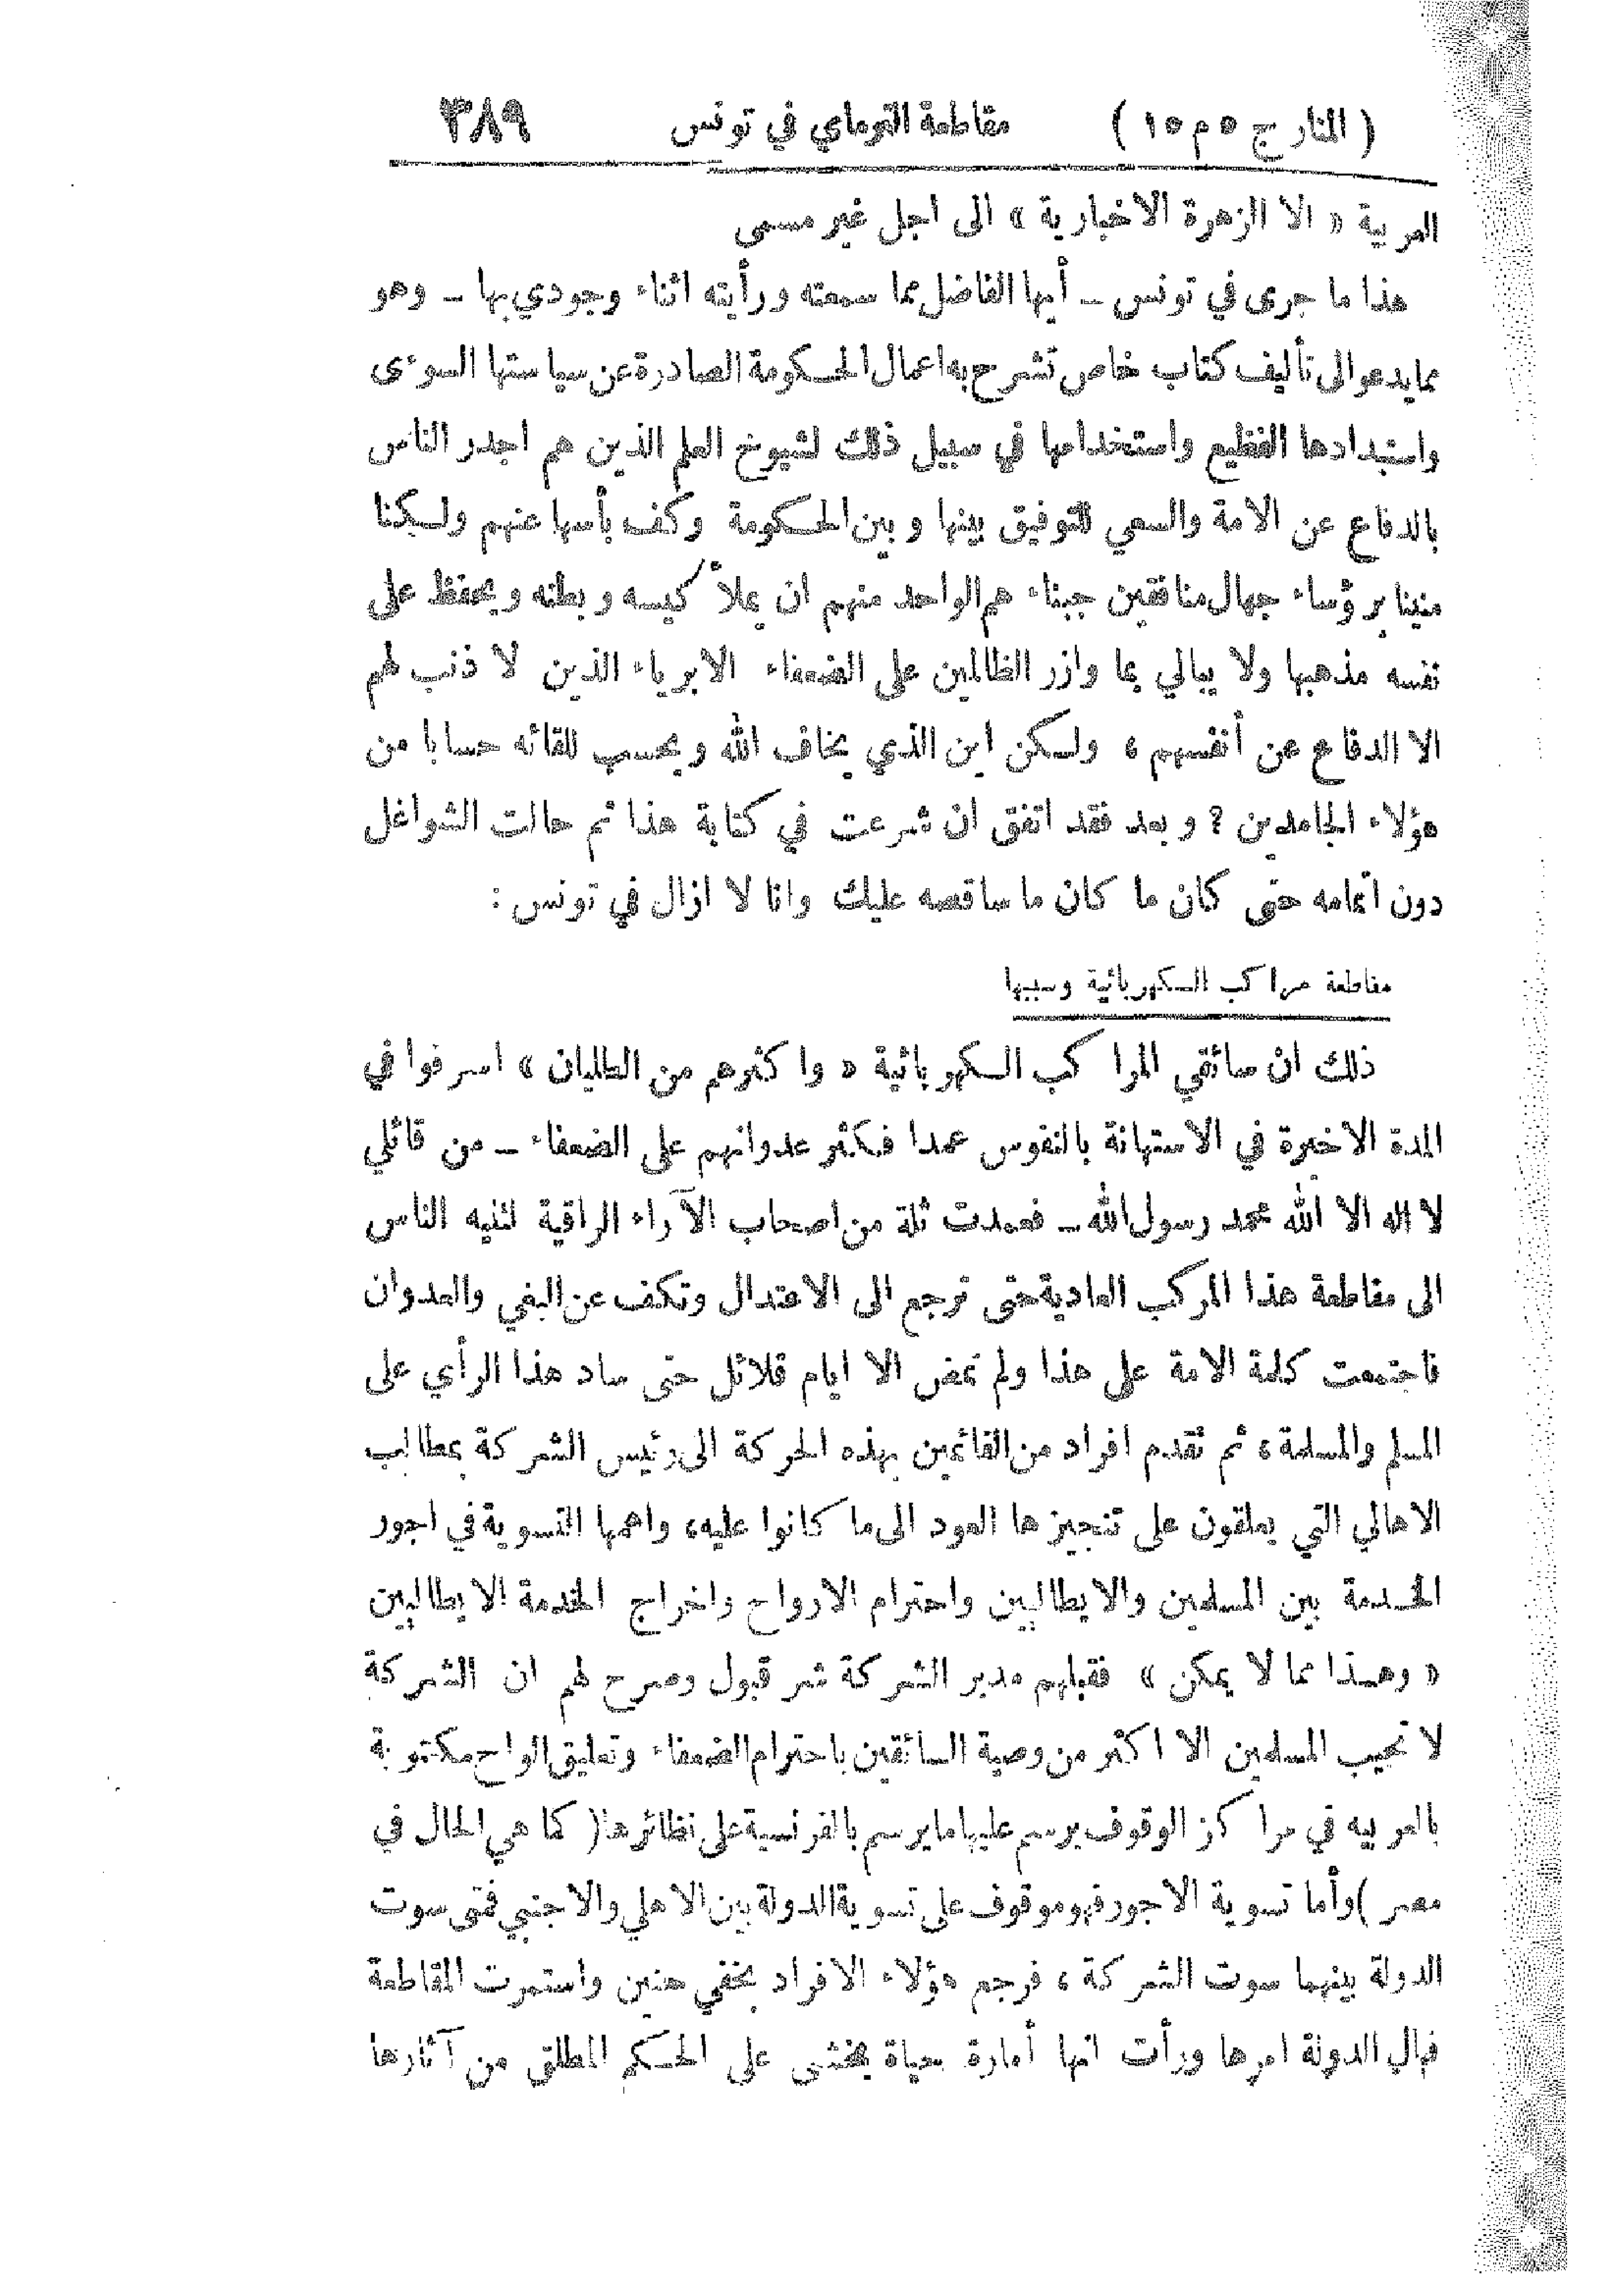 ( المنار ج ٥ م ١٥ ) مقاطعة الترمواي في تونس ٣٨٩
العربية « الا الزهرة الاخبارية » الى اجل غير مسمى
هذا ما جرى في تونس — أيها الفاضل مما سمعته ورأيته اثناء وجودي بها — وهو
مما يدعو الى تأليف كتاب خاص تشرح به اعمال الحكومة الصادرة عن سياستها السوءى
واستبدادها الفظيع واستخدامها في سبيل ذلك لشيوخ العلم الذين هم اجدر الناس
بالدفاع عن الامة والسعي للتوفيق بينها وبين الحكومة وكف بأسها عنهم ولكنا
منينا برؤساء جهال منافقين جبناء هم الواحد منهم ان يملأ كيسه وبطنه ويحفظ على
نفسه مذهبها ولا يبالي بما وازر الظالمين على الضعفاء الابرياء الذين لا ذنب لهم
الا الدفاع عن أنفسهم ، ولكن اين الذي يخاف الله ويحسب للقائه حسابا من
هؤلاء الجامدين ؟ وبعد فقد اتفق ان شرعت في كتابة هذا ثم حالت الشواغل
دون اتمامه حتى كان ما كان ما ساقصه عليك وانا لا ازال في تونس :
مقاطعة مراكب الكهربائية وسببها
ذلك ان سائقي المراكب الكهربائية « واكثرهم من الطليان » اسرفوا في
المدة الاخيرة في الاستهانة بالنفوس عمدا فكثر عدوانهم على الضعفاء — من قائلي
لا اله الا الله محمد رسول الله — فعمدت ثلة من اصحاب الآراء الراقية لتنبيه الناس
الى مقاطعة هذا المركب العادية حتى ترجع الى الاعتدال وتكف عن البغي والعدوان
فاجتمعت كلمة الامة على هذا ولم تمض الا ايام قلائل حتى ساد هذا الرأي على
المسلم والمسلمة ، ثم تقدم افراد من القائمين بهذه الحركة الى رئيس الشركة بمطالب
الاهالي التي يعلقون على تنجيزها العود الى ما كانوا عليه ، واهمها التسوية في اجور
الخدمة بين المسلمين والايطاليين واحترام الارواح واخراج الخدمة الايطاليين
« وهذا مما لا يمكن » فقبلهم مدير الشركة شر قبول وصرح لهم ان الشركة
لا تجيب المسلمين الا اكثر من وصية السائقين باحترام الضعفاء وتعليق الواح مكتوبة
بالعربيه في مراكز الوقوف يرسم عليها ما يرسم بالفرنسية على نظائرها ( كما هي الحال في
مصر ) وأما تسوية الاجور فهو موقوف على تسوية الدولة بين الاهلي والاجنبي فمتى سوت
الدولة بينهما سوت الشركة ، فرجع هؤلاء الافراد بخفي حنين واستمرت المقاطعة
فهال الدولة امرها ورأت انها أمارة بحياة يخشى على الحكم المطلق من آثارها